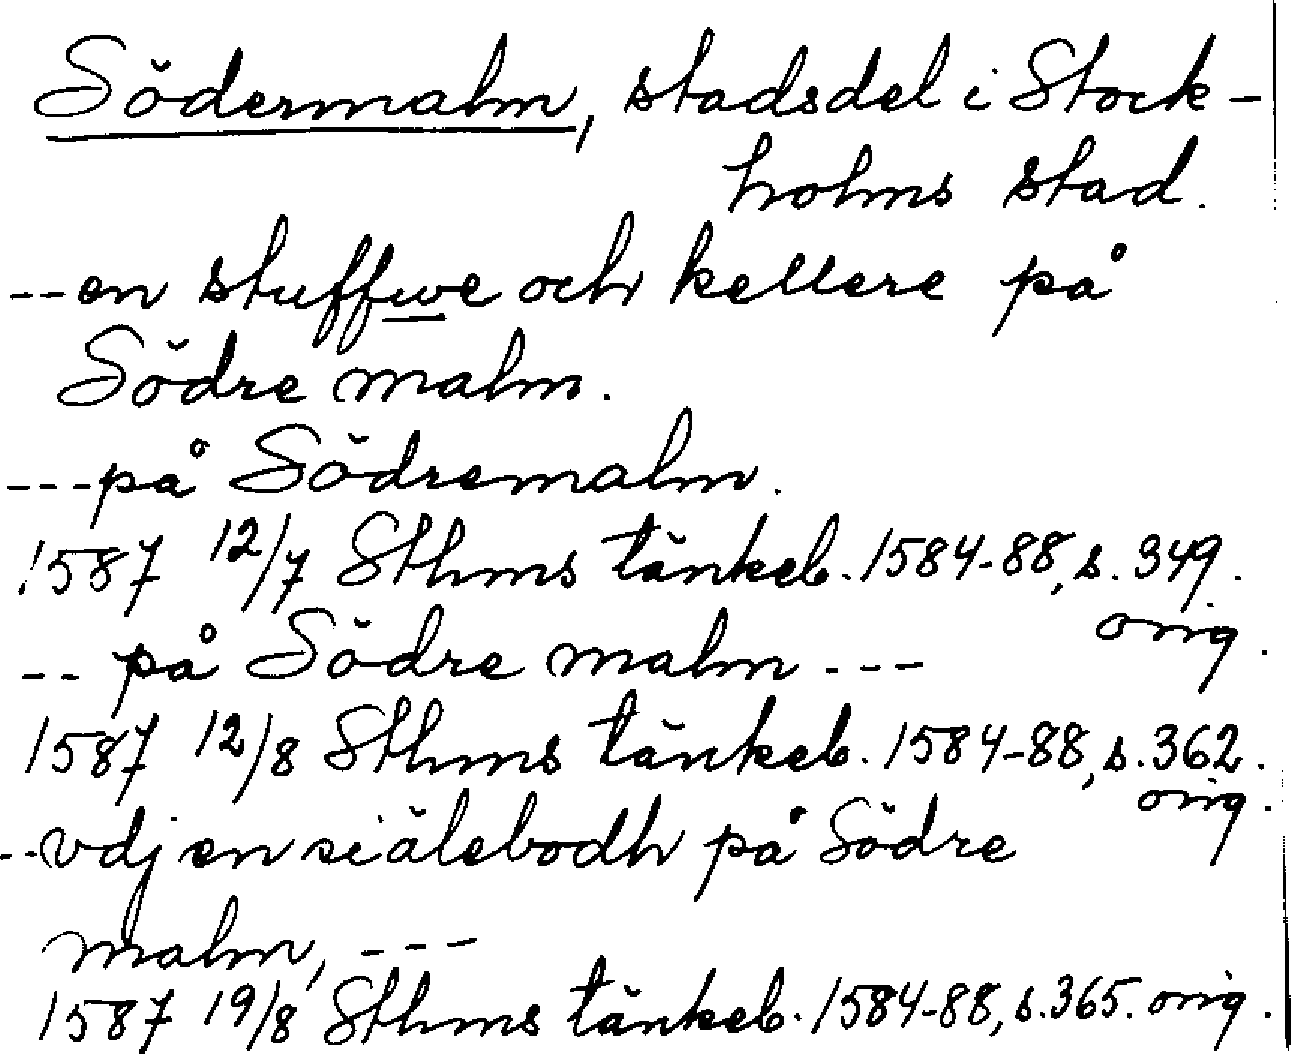 Södermalm, stadsdel i Stock-
holms stad.
--en stuffwe och kellere på
Södre malm.
---på Södremalm.
1587 12/7 Sthms tänkeb. 1584-88, s. 349.
orig.
-- på Södre malm ---
1587 12/8 Sthms tänkeb. 1584-88, s. 362.
orig.
--vdj en siälebodh på Södre
malm, ---
1587 19/8 Sthms tänkeb. 1584-88, s. 365. orig.